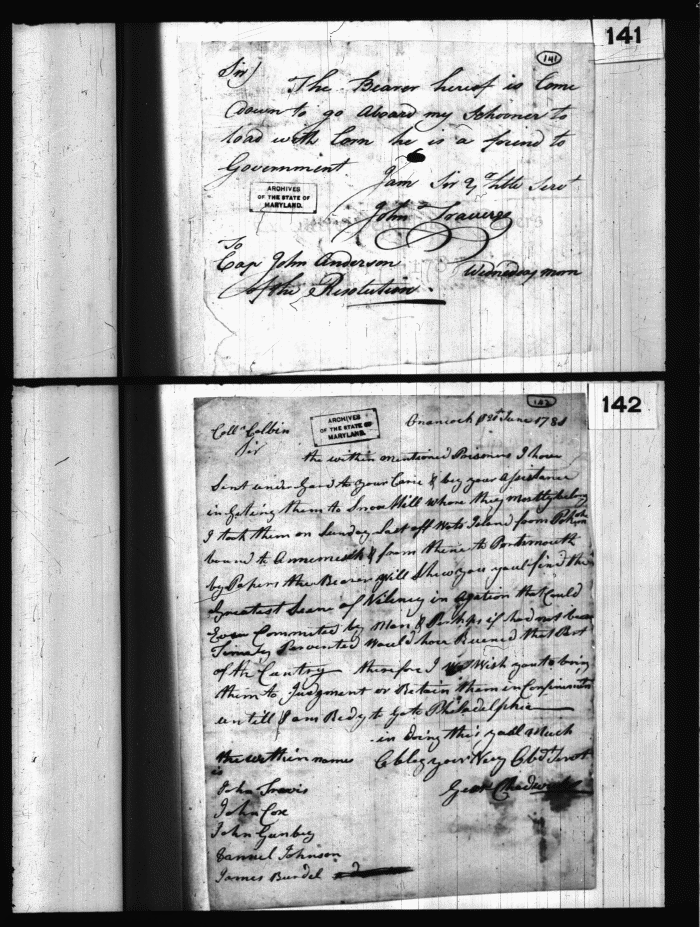 141
141
Sir)
The Bearer hereof is Come
down to go aboard my Schooner to
load with Corn he is a friend to
Government
I am Sir Yr hble Servt
ARCHIVES
OF THE STATE OF
MARYLAND.
John Travers
To
Cap John Anderson
of the Resolution
Wednesday morn
142
142
ARCHIVES
OF THE STATE OF
MARYLAND.
Coll Colbin
Sir
Onancock June 1781
the within mentioned Prisoners I have
Sent under Gard to your Care & beg your assistance
in Geting them to Snow Hill where they mostly belong
I took them on Sunday Last off Wats Island from
bound to Annemesk & from thence to Portsmouth
by Papers the Bearer will Shew you youl find the
Greatest Scene of Vilency in agation that Could
Ever Commited by Man & Perhaps if had not been
Timely Prevented Would have Ruened that Part
of the Cuntry therefore I Wish you to bring
them to Judgment or Retain them in Confinment
untill I am Redy to Goto Philadelphia
in Doing this youll Much
the within names Obleg your Very Obdt Servt
is
John Travis
John Cox
John Gunbey
Samuel Johnson
James Burdel